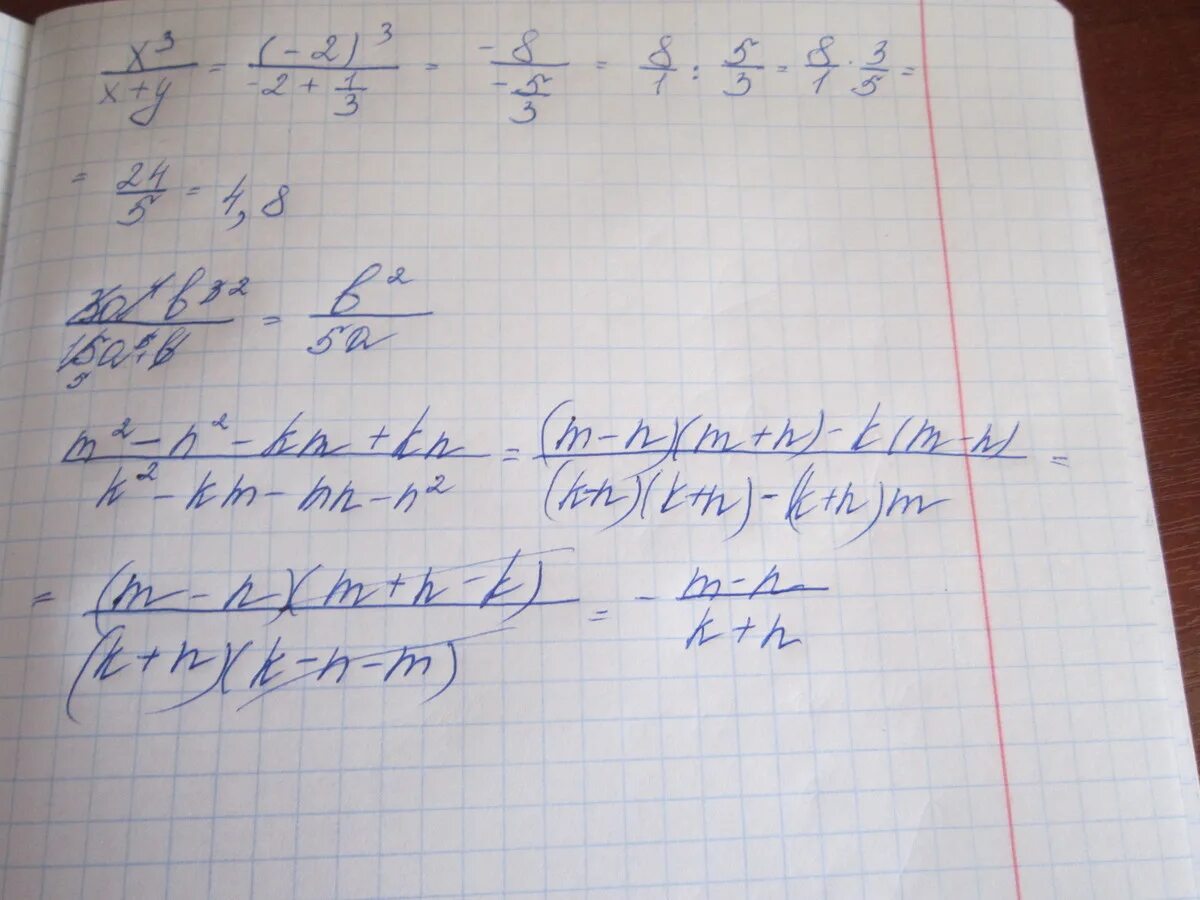 x³/(x+y) = (-2)³/(-2+1/3) = -8/(-5/3) = 8/1 : 5/3 = 8/1 · 3/5 =
= 24/5 = 4,8
3a⁴b³/15a⁵b = b²/5a
(m²-n²-km+kn)/(k²-km-mn-n²) = ((m-n)(m+n)-k(m-n))/((k-n)(k+n)-(k+n)m) =
= (m-n)(m+n-k)/(k+n)(k-n-m) = - (m-n)/(k+n)